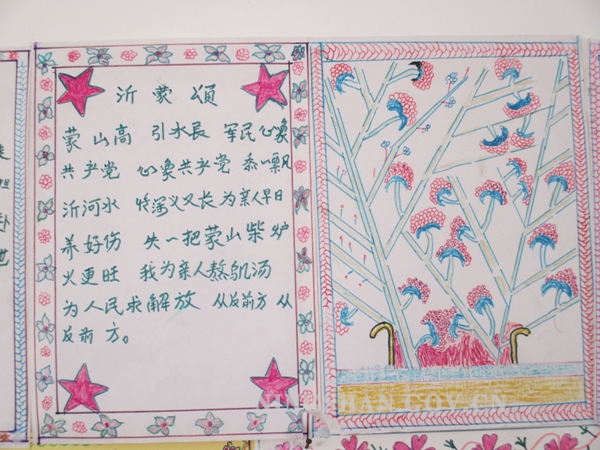 沂蒙颂
蒙山高 引水长 军民心象
共产党 心象共产党 一瓢
沂河水 情深义又长 为亲人早日
养好伤 失一把蒙山柴炉
火更旺 我为亲人熬鸡汤
为人民求解放 从反前方 从
反前方。